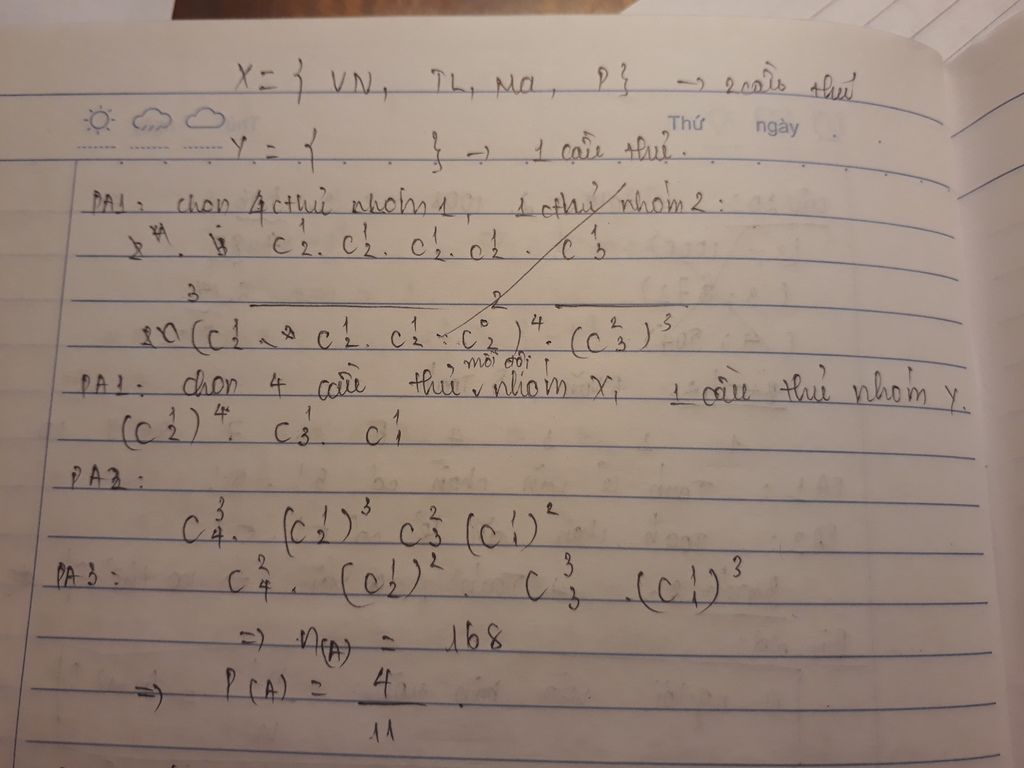 X = { VN, TL, Ma, P} → 2 cầu thủ
Thứ ngày
Y = { } → 1 cầu thủ.
PA1: chọn 4 cthủ nhóm 1, 1 cthủ nhóm 2:
C¹₂. C¹₂. C¹₂. C¹₂ . C¹₃
3 2
(C¹₂ C¹₂. C¹₂ . C⁰₂)⁴ . (C²₃)³
mỗi đội
PA1: chọn 4 cầu thủ nhóm X, 1 cầu thủ nhóm Y.
(C¹₂)⁴. C¹₃. C¹₁
PA2:
C³₄. (C¹₂)³ C²₃ (C¹₁)²
PA3: C²₄. (C¹₂)² . C³₃ .(C¹₁)³
=> n(A) = 168
=> P(A) = 4
11